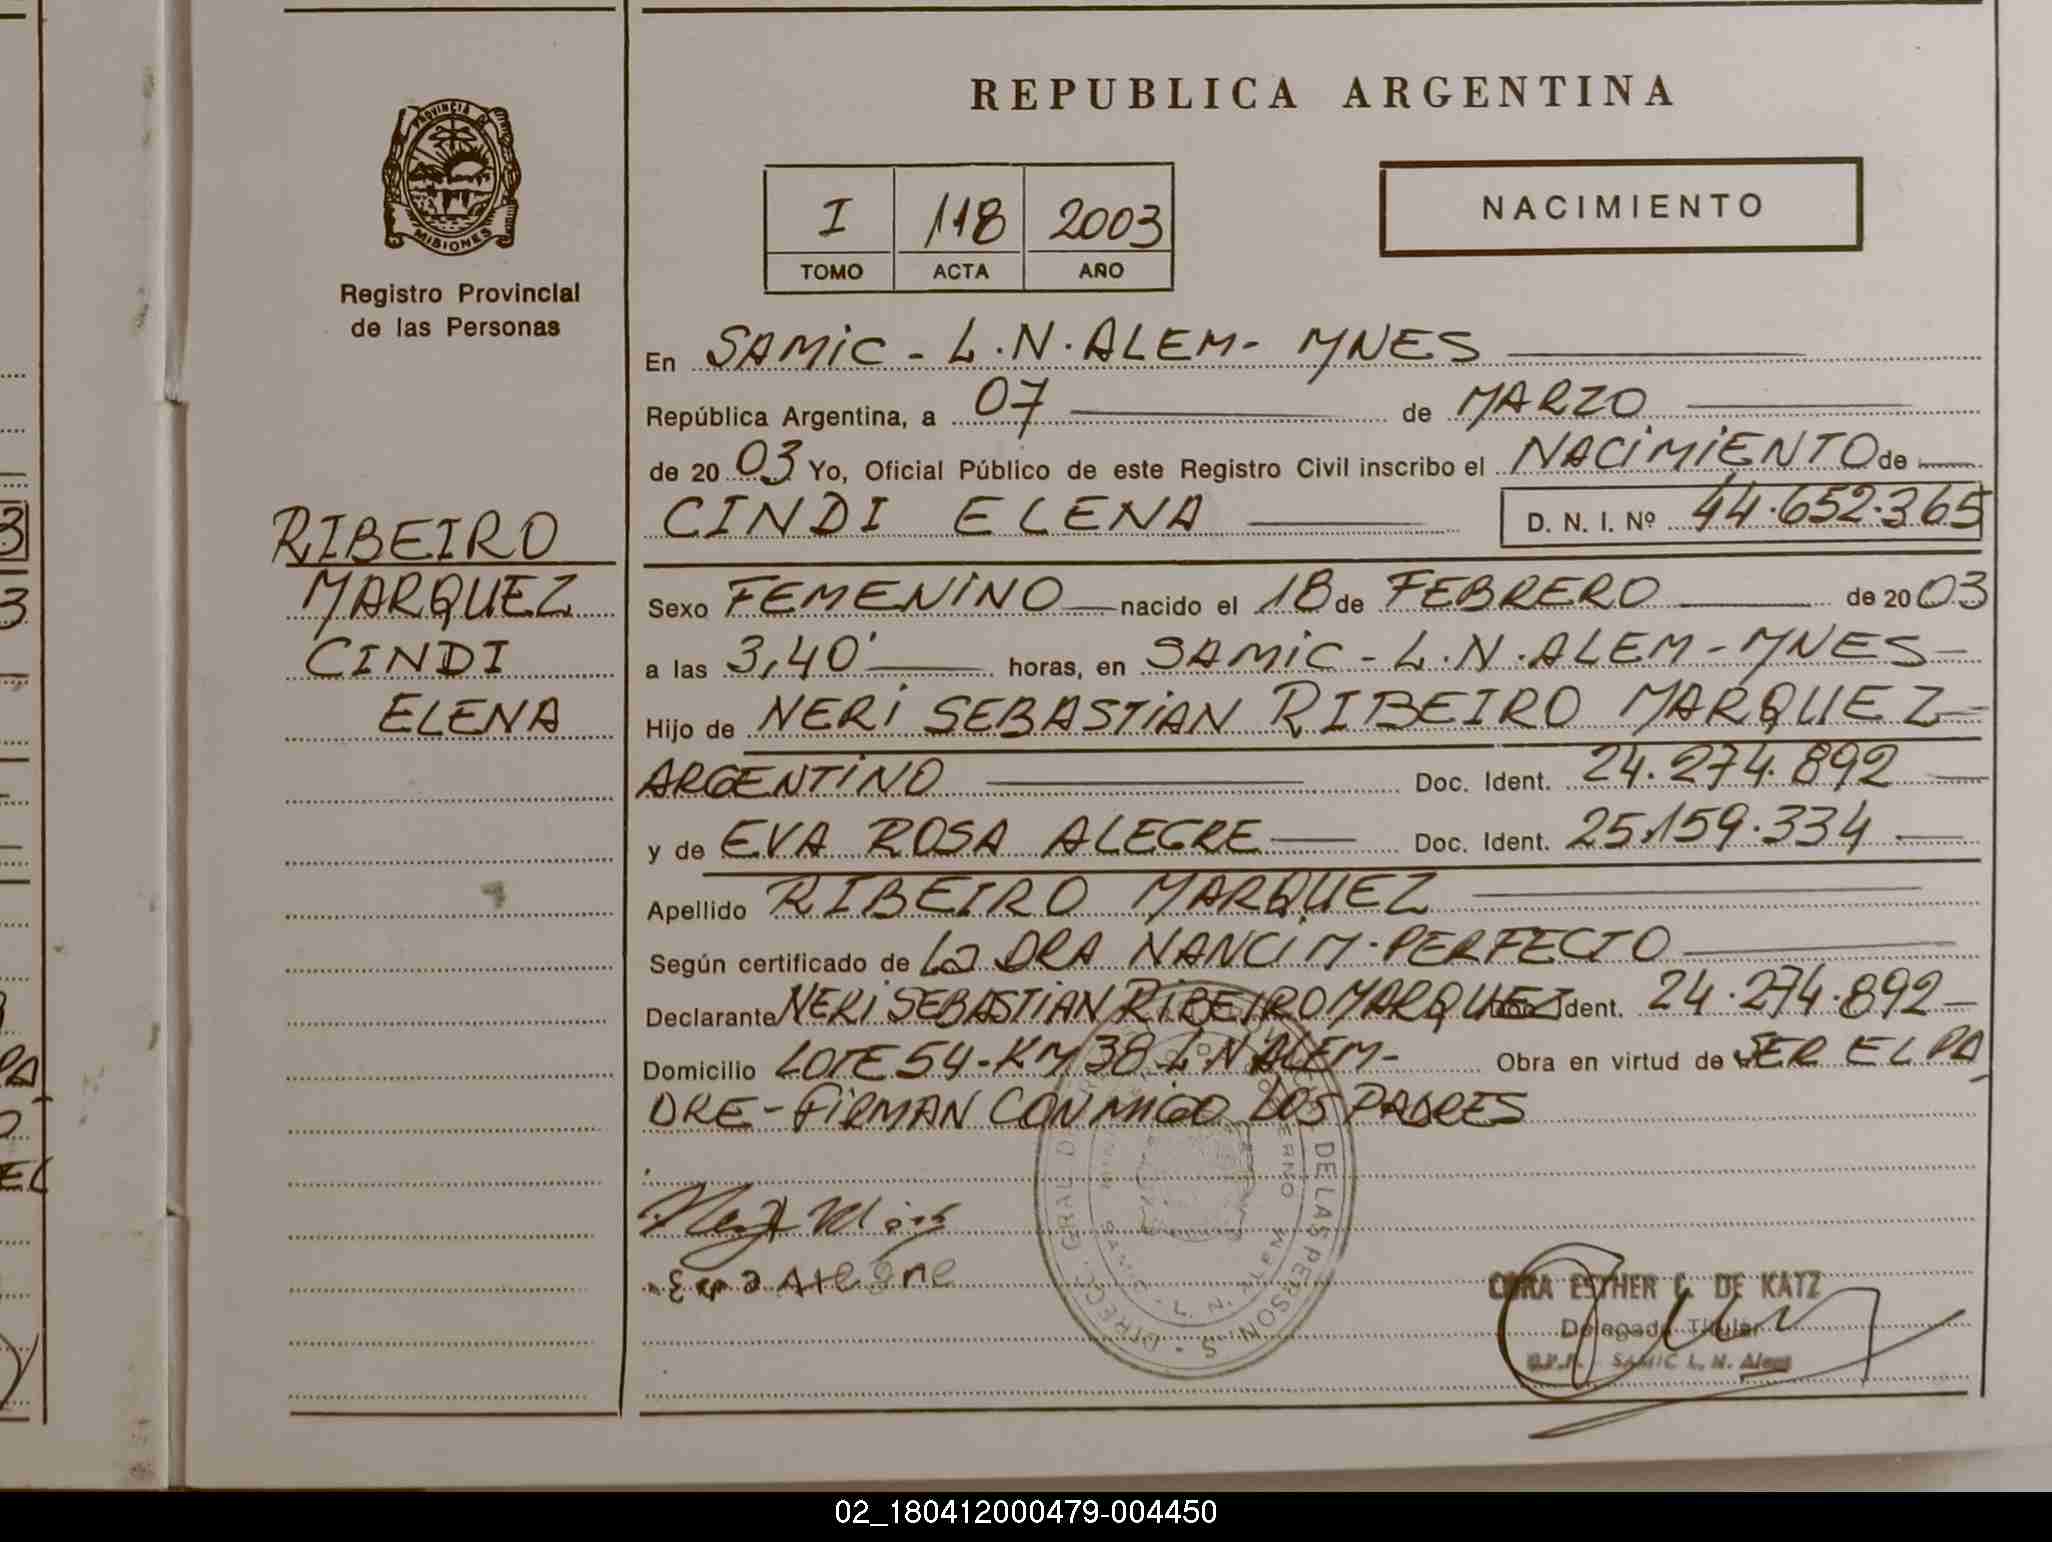 REPUBLICA ARGENTINA
PROVINCIA DE
MISIONES
Registro Provincial
de las Personas
I 118 2003
TOMO ACTA AÑO
NACIMIENTO
En SAMIC - L.N. ALEM - MNES
República Argentina, a 07 de MARZO
de 20 03 Yo, Oficial Público de este Registro Civil inscribo el NACIMIENTO de
CINDI ELENA D. N. I. Nº 44.652.365
RIBEIRO
MARQUEZ
CINDI
ELENA
Sexo FEMENINO nacido el 18 de FEBRERO de 20 03
a las 3,40' horas, en SAMIC - L.N. ALEM - MNES
Hijo de NERI SEBASTIAN RIBEIRO MARQUEZ
ARGENTINO Doc. Ident. 24.274.892
y de EVA ROSA ALEGRE Doc. Ident. 25.159.334
Apellido RIBEIRO MARQUEZ
Según certificado de La DRA NANCI M. PERFECTO
Declarante NERI SEBASTIAN RIBEIRO MARQUEZ Doc. Ident. 24.274.892
Domicilio LOTE 54 - KM 38 L.N ALEM - Obra en virtud de SER EL PA
DRE - FIRMAN CONMIGO LOS PADRES
DE LAS PERSONAS
ESTHER C. DE KATZ
Delegada Titular
SAMIC L. N. Alem
02_180412000479-004450